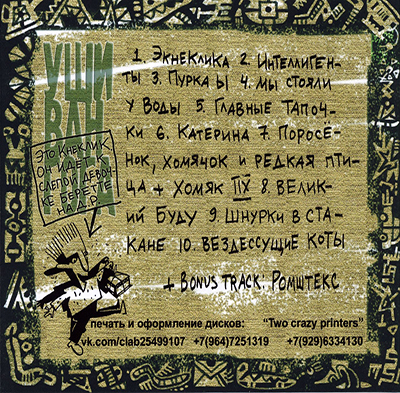 УШИ
ВАН
ГОГА
ЭТО КНЕКЛИК
ОН ИДЕТ К
СЛЕПОЙ ДЕВОЧ-
КЕ БЕРЕТТЕ
НА Д.Р.
1. ЭКНЕКЛИКА 2. ИНТЕЛЛИГЕН-
ТЫ 3. ПУРКА Ы 4. МЫ СТОЯЛИ
У ВОДЫ 5. ГЛАВНЫЕ ТАПОЧ-
КИ 6. КАТЕРИНА 7. ПОРОСЁ-
НОК, ХОМЯЧОК И РЕДКАЯ ПТИ-
ЦА + ХОМЯК IIX 8. ВЕЛИК-
ИЙ БУДУ 9. ШНУРКИ В СТА-
КАНЕ 10. ВЕЗДЕССУЩИЕ КОТЫ
+ BONUS TRACK: РОМШТЕКС
печать и оформление дисков: "Two crazy printers"
vk.com/clab25499107 +7(964)7251319 +7(929)6334130